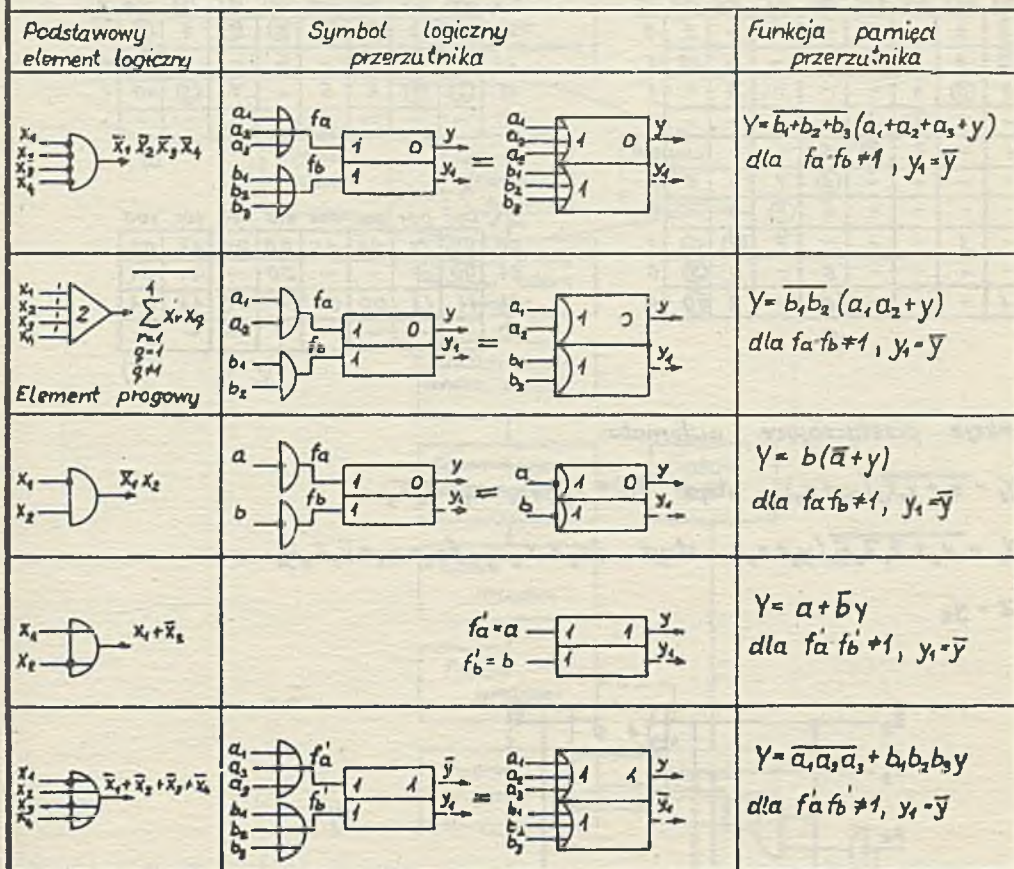 Podstawowy
element logiczny
Symbol logiczny
przerzutnika
Funkcja pamięci
przerzutnika
x₁
x₂
x₃
x₄
x̄₁ x̄₂ x̄₃ x̄₄
a₁
a₂
a₃
fa
b₁
b₂
b₃
fb
1 0
1
y
y₁
=
a₁
a₂
a₃
b₁
b₂
b₃
1 0
1
y
y₁
Y= \overline{b₁+b₂+b₃} (a₁+a₂+a₃+y)
dla fa·fb≠1, y₁=ȳ
x₁
x₂
x₃
x₄
2
4
∑ xᵣ x_q
r=1
q=1
Element progowy
a₁
a₂
fa
b₁
b₂
fb
1 0
1
y
y₁
=
a₁
a₂
b₁
b₂
1 0
1
y
y₁
Y= \overline{b₁b₂} (a₁a₂+y)
dla fa·fb≠1, y₁=ȳ
x₁
x₂
x̄₁ x₂
a
b
fa
fb
1 0
1
y
y₁
=
a
b
1 0
1
y
y₁
Y= b(ā+y)
dla fa fb≠1, y₁=ȳ
x₁
x₂
x₁+x̄₂
f'a=a
f'b=b
1 1
1
y
y₁
Y= a+b̄y
dla f'a f'b≠1, y₁=ȳ
x₁
x₂
x₃
x₄
x̄₁+x̄₂+x̄₃+x̄₄
a₁
a₂
a₃
f'a
b₁
b₂
b₃
fb
1 1
1
ȳ
y₁
=
a₁
a₂
a₃
b₁
b₂
b₃
1 1
1
y
ȳ₁
Y= \overline{a₁a₂a₃} + b₁b₂b₃y
dla f'a fb'≠1, y₁=ȳ